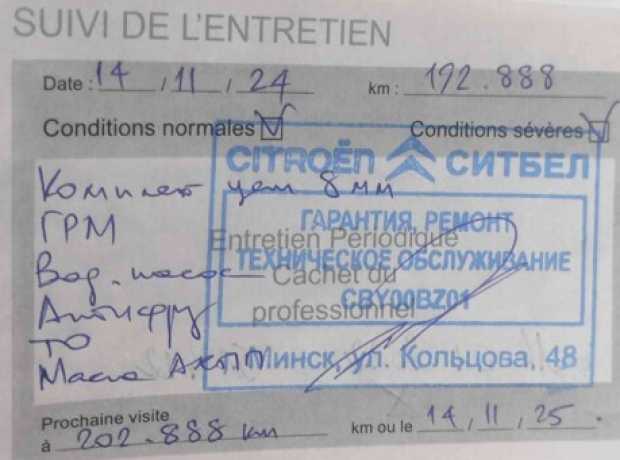 SUIVI DE L'ENTRETIEN
Date : 14 / 11 / 24 km : 192.888
Conditions normales Conditions sévères
CITROËN СИТБЕЛ
Комплект цепи 8мм
ГРМ
ГАРАНТИЯ, РЕМОНТ
Entretien Périodique
Вод. насос
ТЕХНИЧЕСКОЕ ОБСЛУЖИВАНИЕ
Cachet du
CBY00BZ01
Антифриз
professionnel
ТО
Масло АКПП
Минск, ул. Кольцова, 48
Prochaine visite
à 202.888 km km ou le 14 / 11 / 25.